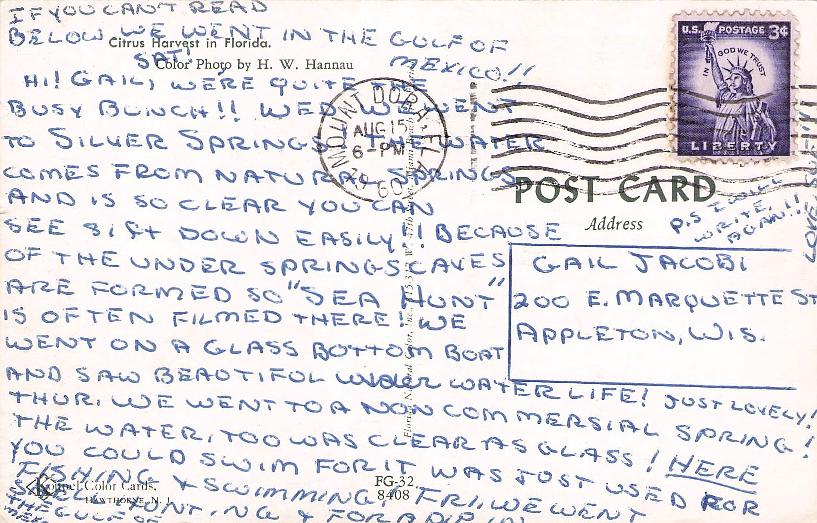 IF YOU CAN'T READ
BELOW WE WENT IN THE GULF OF
MEXICO!!
Citrus Harvest in Florida.
Color Photo by H. W. Hannau
SAT.
HI! GAIL, WE'RE QUITE THE
BUSY BUNCH!! WED. WE WENT
TO SILVER SPRINGS! THE WATER
COMES FROM NATURAL SPRINGS
AND IS SO CLEAR YOU CAN
SEE 81 FT DOWN EASILY!! BECAUSE
OF THE UNDER SPRINGS CAVES
ARE FORMED SO "SEA HUNT"
IS OFTEN FILMED THERE! WE
WENT ON A GLASS BOTTOM BOAT
AND SAW BEAUTIFUL UNDER WATER LIFE! JUST LOVELY!
THUR. WE WENT TO A NON COMMERSIAL SPRING!
THE WATER, TOO WAS CLEAR AS GLASS! HERE
YOU COULD SWIM FOR IT WAS JUST USED FOR
FISHING & SWIMMING! FRI. WE WENT
& FOR A DIP IN
THE GULF OF
MOUNT DORA, FLA.
AUG 15
6-PM
1960
U.S. POSTAGE 3¢
IN GOD WE TRUST
LIBERTY
POST CARD
Address
P.S I WILL
WRITE
AGAIN!!
LOVE,
GAIL JACOBI
200 E. MARQUETTE ST
APPLETON, WIS.
Koppel Color Cards.
HAWTHORNE, N. J.
FG-32
8408